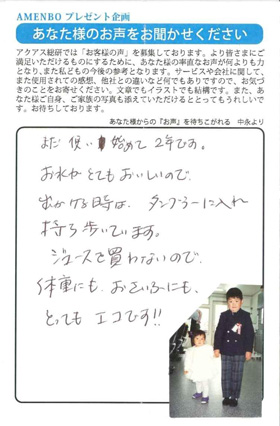 AMENBO プレゼント企画
あなた様のお声をお聞かせください
アクアス総研では「お客様の声」を募集しております。より皆さまにご
満足いただけるものにするために、あなた様の率直なお声が何よりも力
となり、また私どもの今後の参考となります。サービスや会社に関して、
また使用されての感想、他社との違いなど何でもありですので、お気づ
きのことをお寄せください。文章でもイラストでも結構です。また、あ
なた様ご自身、ご家族の写真も添えていただけるととってもうれしいで
す。お待ちしております。
あなた様からの『お声』を待ちこがれる 中永より
まだ使い始めて2年です。
お水がとてもおいしいので、
出かける時は、タンブラーに入れ
持ち歩いています。
ジュースを買わないので、
体重にも、おさいふにも、
とっても エコです!!